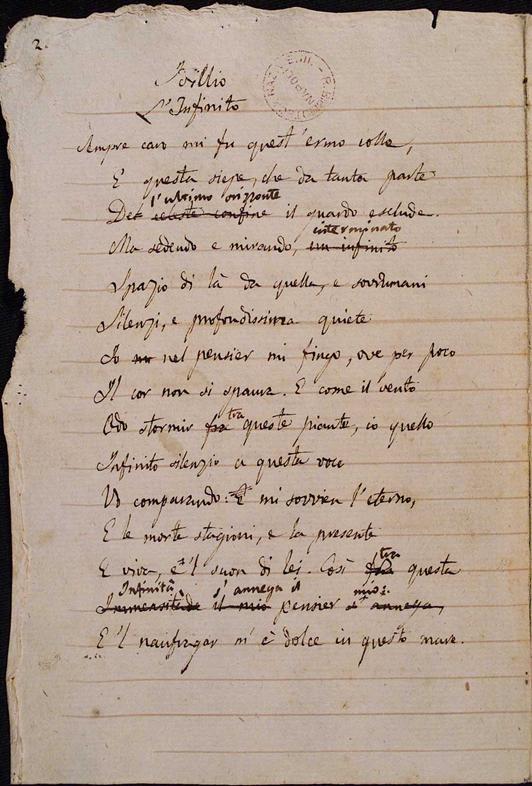 2.
Idillio
L'Infinito
Sempre caro mi fu quest'ermo colle,
E questa siepe, che da tanta parte
l'ultimo orizzonte
Del celeste confine il guardo esclude.
interminato
Ma sedendo e mirando, un infinito
Spazio di là da quella, e sovrumani
Silenzi, e profondissima quiete
Io mi nel pensier mi fingo, ove per poco
Il cor non si spaura. E come il vento
tra
Odo stormir fra queste piante, io quello
Infinito silenzio a questa voce
Vo comparando: E mi sovvien l'eterno,
E le morte stagioni, e la presente
tra
E viva, e 'l suon di lei. Così fra questa
Infinità s'annega il mio:
Immensitade il mio pensier s'annega,
E 'l naufragar m'è dolce in questo mare.